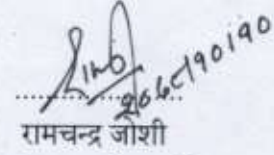 २०६८।१०।१०
रामचन्द्र जोशी